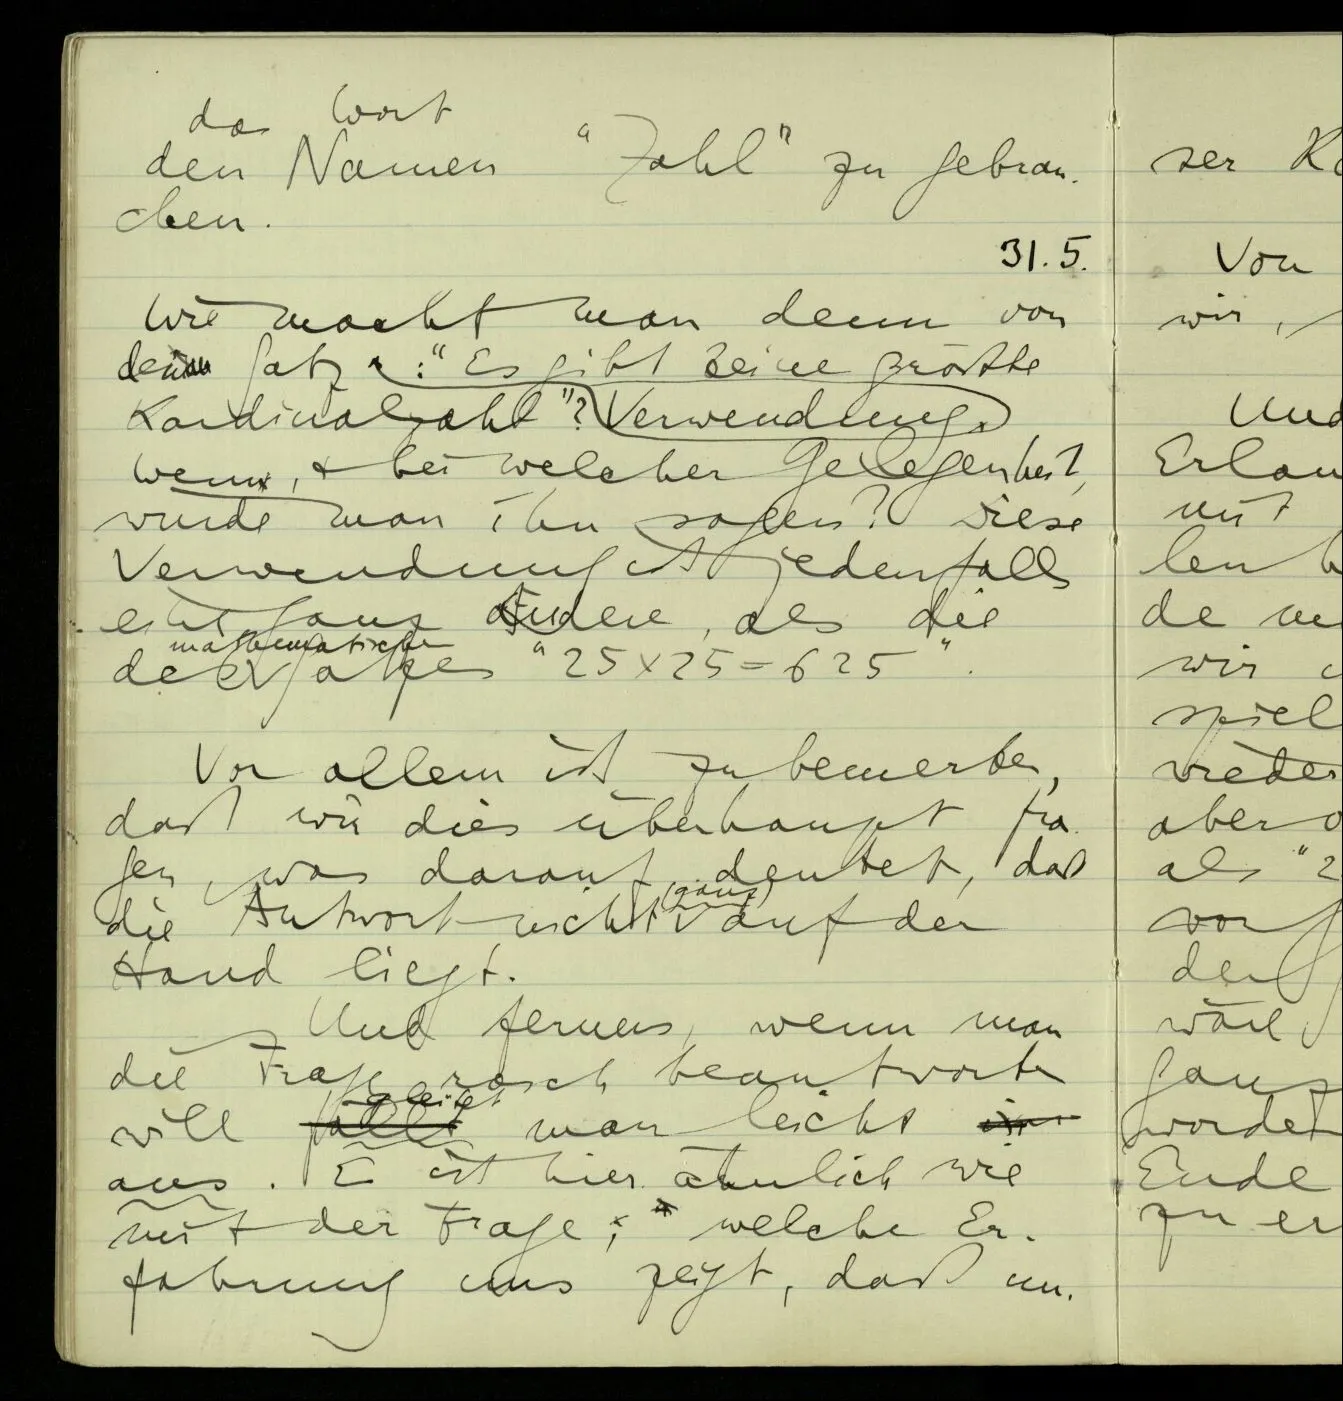 das Wort
den Namen "Zahl" zu gebrau-
chen.
31.5.
Wie macht man denn von
dem Satz: "Es gibt keine größte
Kardinalzahl"? Verwendung.
Wenn, & bei welcher Gelegenheit,
würde man ihn sagen? Diese
Verwendung ist jedenfalls
eine ganz andere, als die
mathematischen
des Satzes "25×25=625".
Vor allem ist zu bemerken,
daß wir dies überhaupt fra-
gen, was darauf deutet, daß
(ganz)
die Antwort nicht auf der
Hand liegt.
Und ferner, wenn man
die Frage rasch beantworten
gleitet
will fällt man leicht
aus. Es ist hier ähnlich wie
mit der Frage, welche Er-
fahrung uns zeigt, daß un-
ser
Von
wir,
Und
Erlau
mit
len
de
wir
spiel
wieder
aber
als "2
vor
den
wäre,
ganz
worden
Ende
zu er